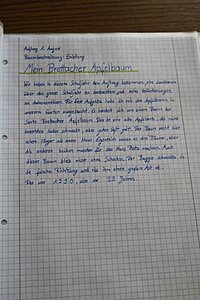 Auftrag 1, August
Baumbeschreibung: Einleitung
Mein Brettacher Apfelbaum
Wir haben in diesem Schuljahr den Auftrag bekommen, eine Baumart
über das ganze Schuljahr zu beobachten und seine Veränderungen
zu dokumentieren. Für diese Aufgabe habe ich mir den Apfelbaum in
unserem Garten ausgesucht. Es handelt sich um einen Baum der
Sorte Brettacher Apfelbaum. Das ist eine alte Apfelsorte, die nicht
besonders lecker schmeckt, aber guten Saft gibt. Der Baum steht hier
schon länger als unser Haus. Eigentlich waren es drei Bäume, aber
die anderen beiden mussten für das Haus Platz machen. Auch
dieser Baum blieb nicht ohne Schaden. Der Bagger schwenkte in
die falsche Richtung und riss ihm einen großen Ast ab.
Das war 1990, also vor 29 Jahren.